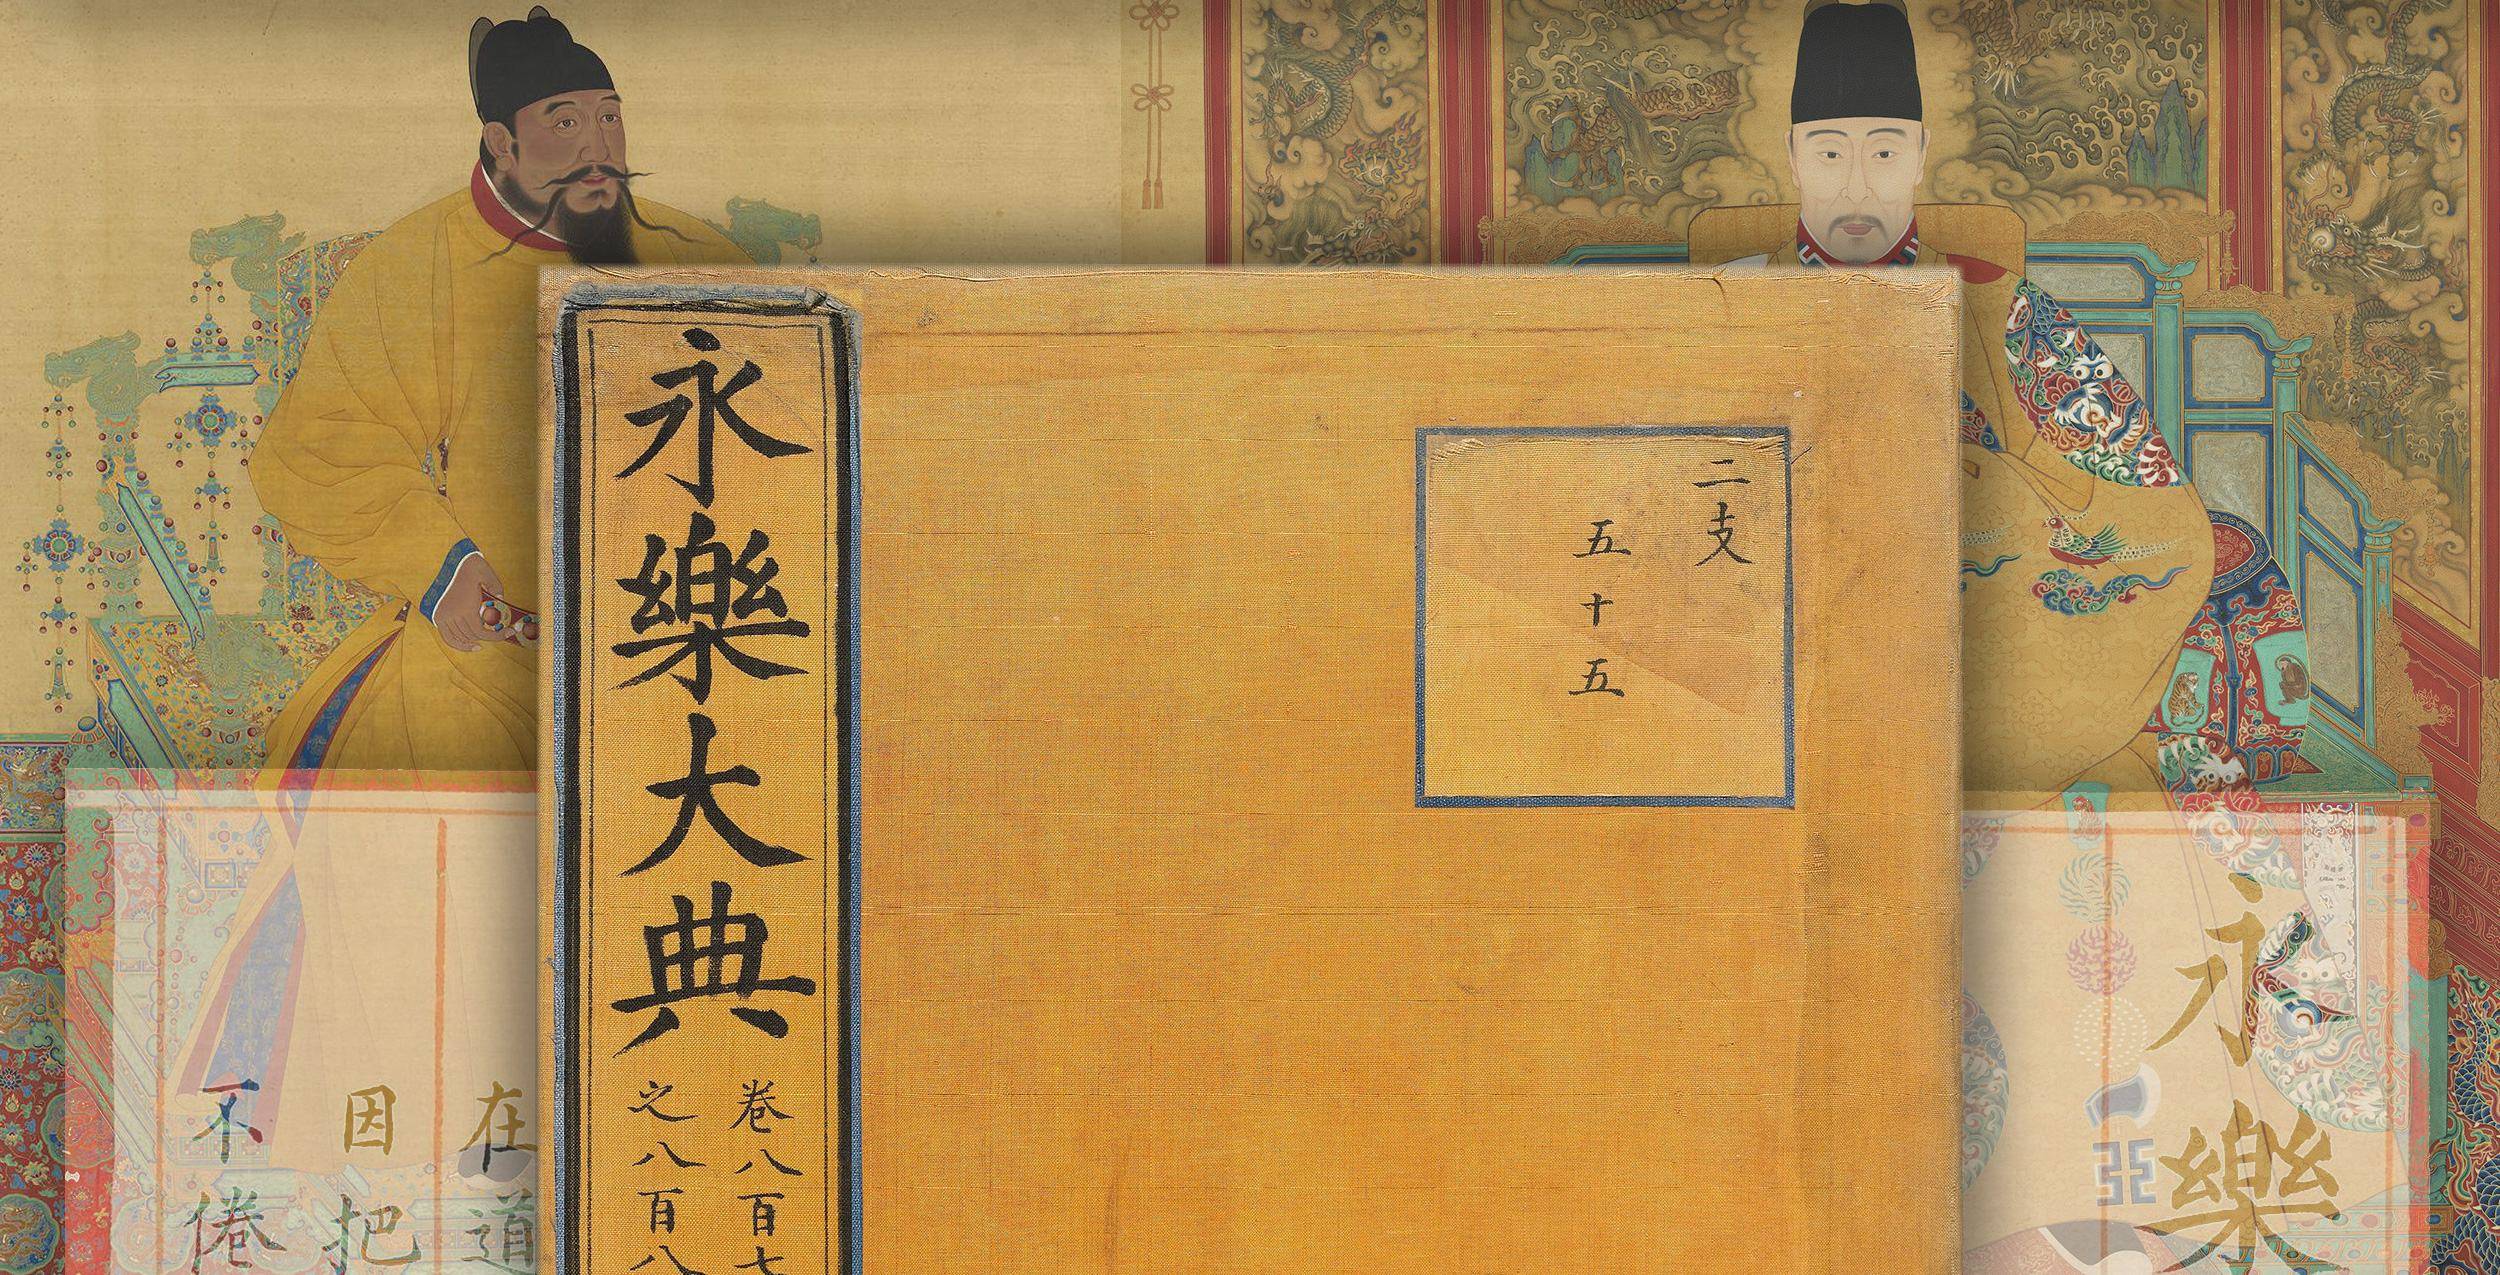 永樂大典
卷八百七
之八百八
二支
五十五
永樂
在道
因把
不倦